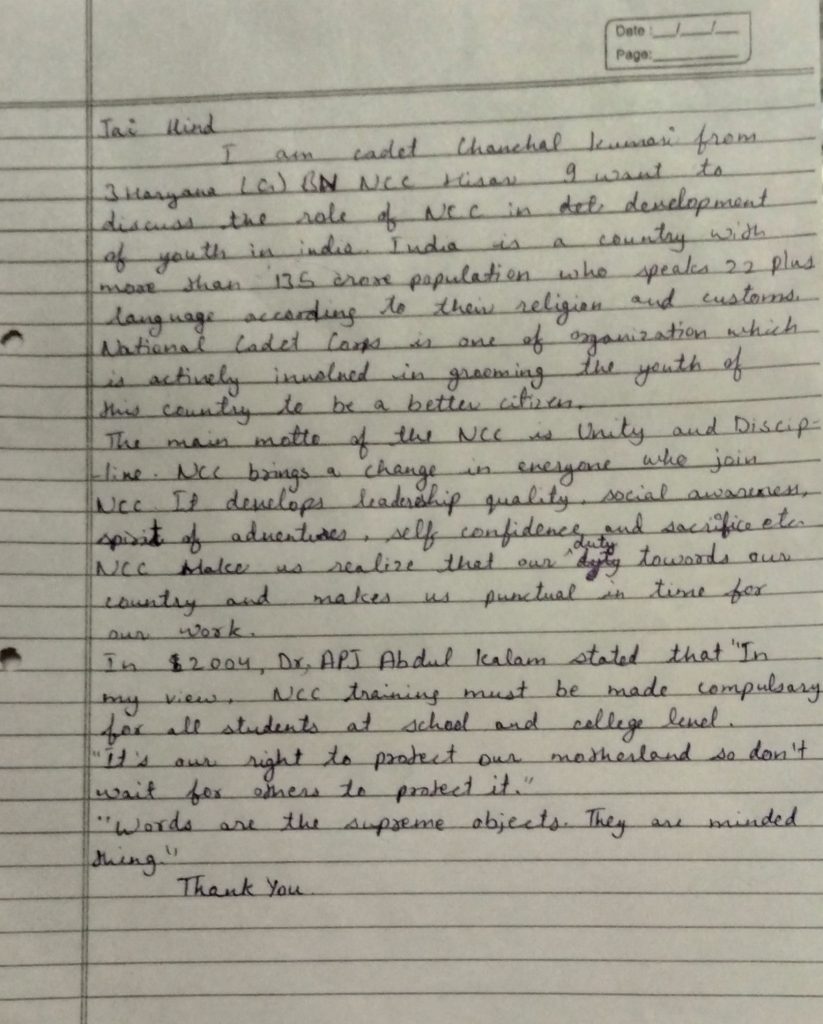 Date :__/__/__
Page:________
Jai Hind
I am cadet Chanchal Kumari from
3 Haryana (G) BN NCC Hisar I want to
discuss the role of NCC in det. development
of youth in india. India is a country with
more than 135 crore population who speaks 22 plus
language according to their religion and customs.
National Cadet Corps is one of organization which
is actively involved in grooming the youth of
this country to be a better citizen.
The main motto of the NCC is Unity and Discip-
-line. NCC brings a change in everyone who join
NCC. It develops leadership quality, social awareness,
spirit of adventures, self confidence and sacrifice etc.
NCC Make us realize that our duty towards our
country and makes us punctual in time for
our work.
In 2004, Dr, APJ Abdul Kalam stated that "In
my view, NCC training must be made compulsary
for all students at school and college level.
"It's our right to protect our motherland so don't
wait for others to protect it."
"Words are the supreme objects. They are minded
thing."
Thank You